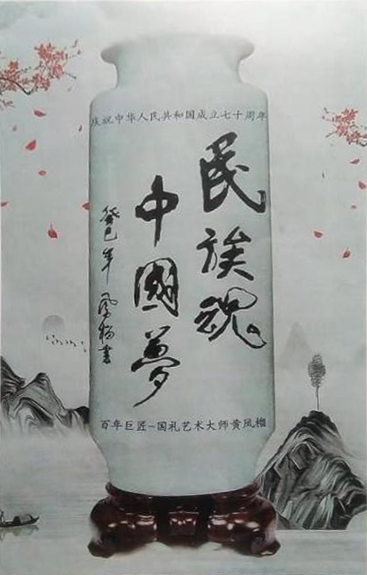 庆祝中华人民共和国成立七十周年
民族魂
中國夢
癸巳年 风榴書
百年巨匠-国礼艺术大师黄凤榴